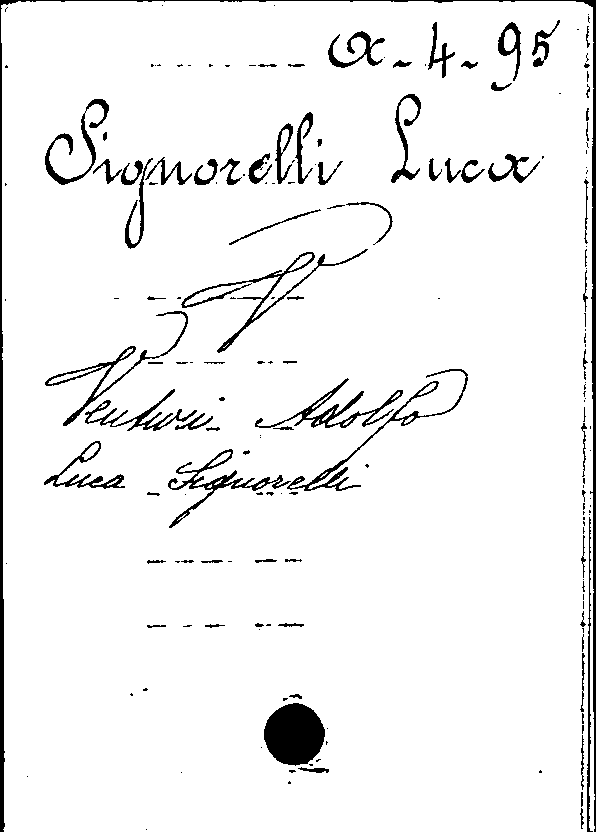 α-4-95
Signorelli Luca
V
Venturi Adolfo
Luca Signorelli